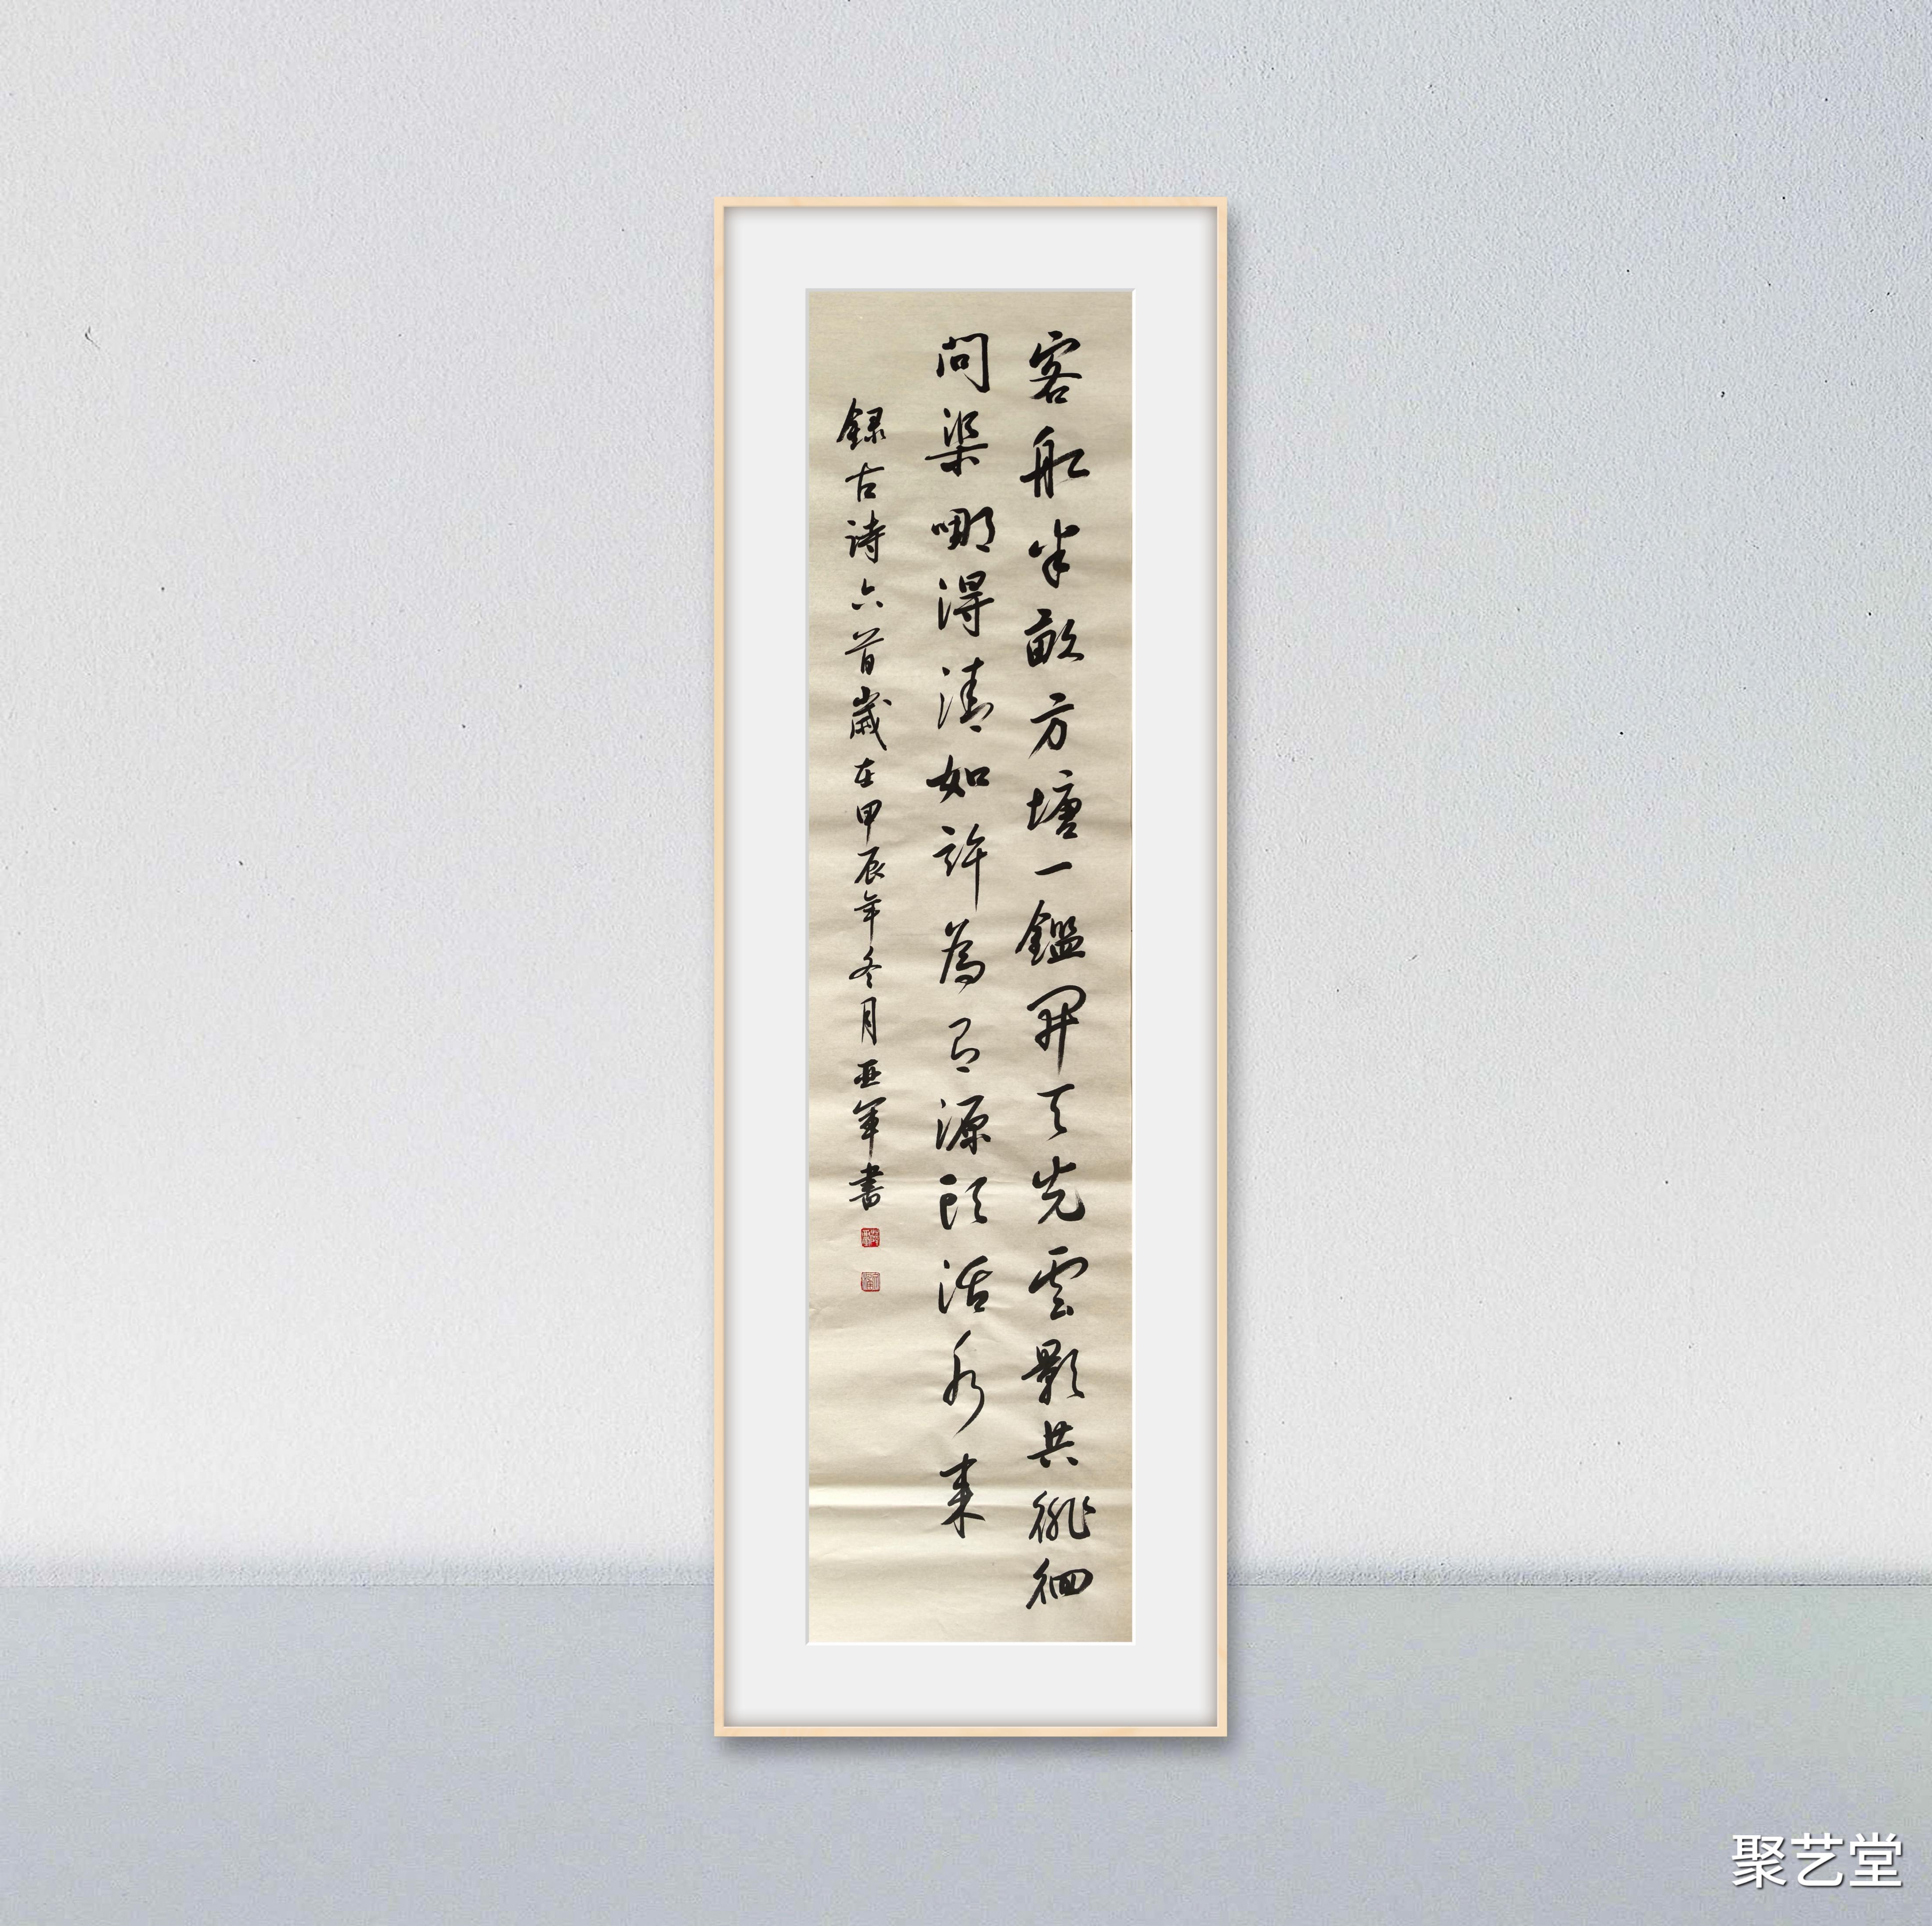 客船半畝方塘一鑑開天光雲影共徘徊
問渠哪得清如許為有源頭活水來
録古詩六首歲在甲辰年冬月亚军書
聚艺堂